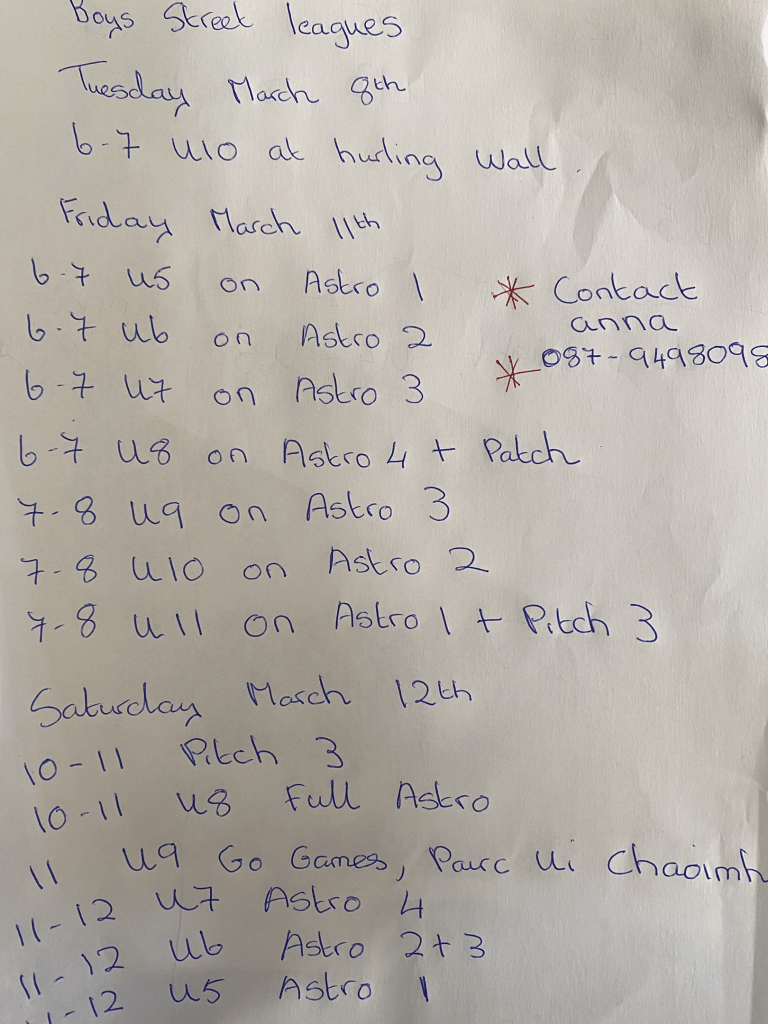 Boys Street leagues
Tuesday March 8th
6-7 U10 at hurling Wall.
Friday March 11th
6-7 U5 on Astro 1
* Contact
anna
6-7 U6 on Astro 2
* 087-9498098
6-7 U7 on Astro 3
6-7 U8 on Astro 4 + Patch
7-8 U9 on Astro 3
7-8 U10 on Astro 2
7-8 U11 on Astro 1 + Pitch 3
Saturday March 12th
10-11 Pitch 3
10-11 U8 Full Astro
11 U9 Go Games, Pairc Ui Chaoimh
11-12 U7 Astro 4
11-12 U6 Astro 2+3
11-12 U5 Astro 1